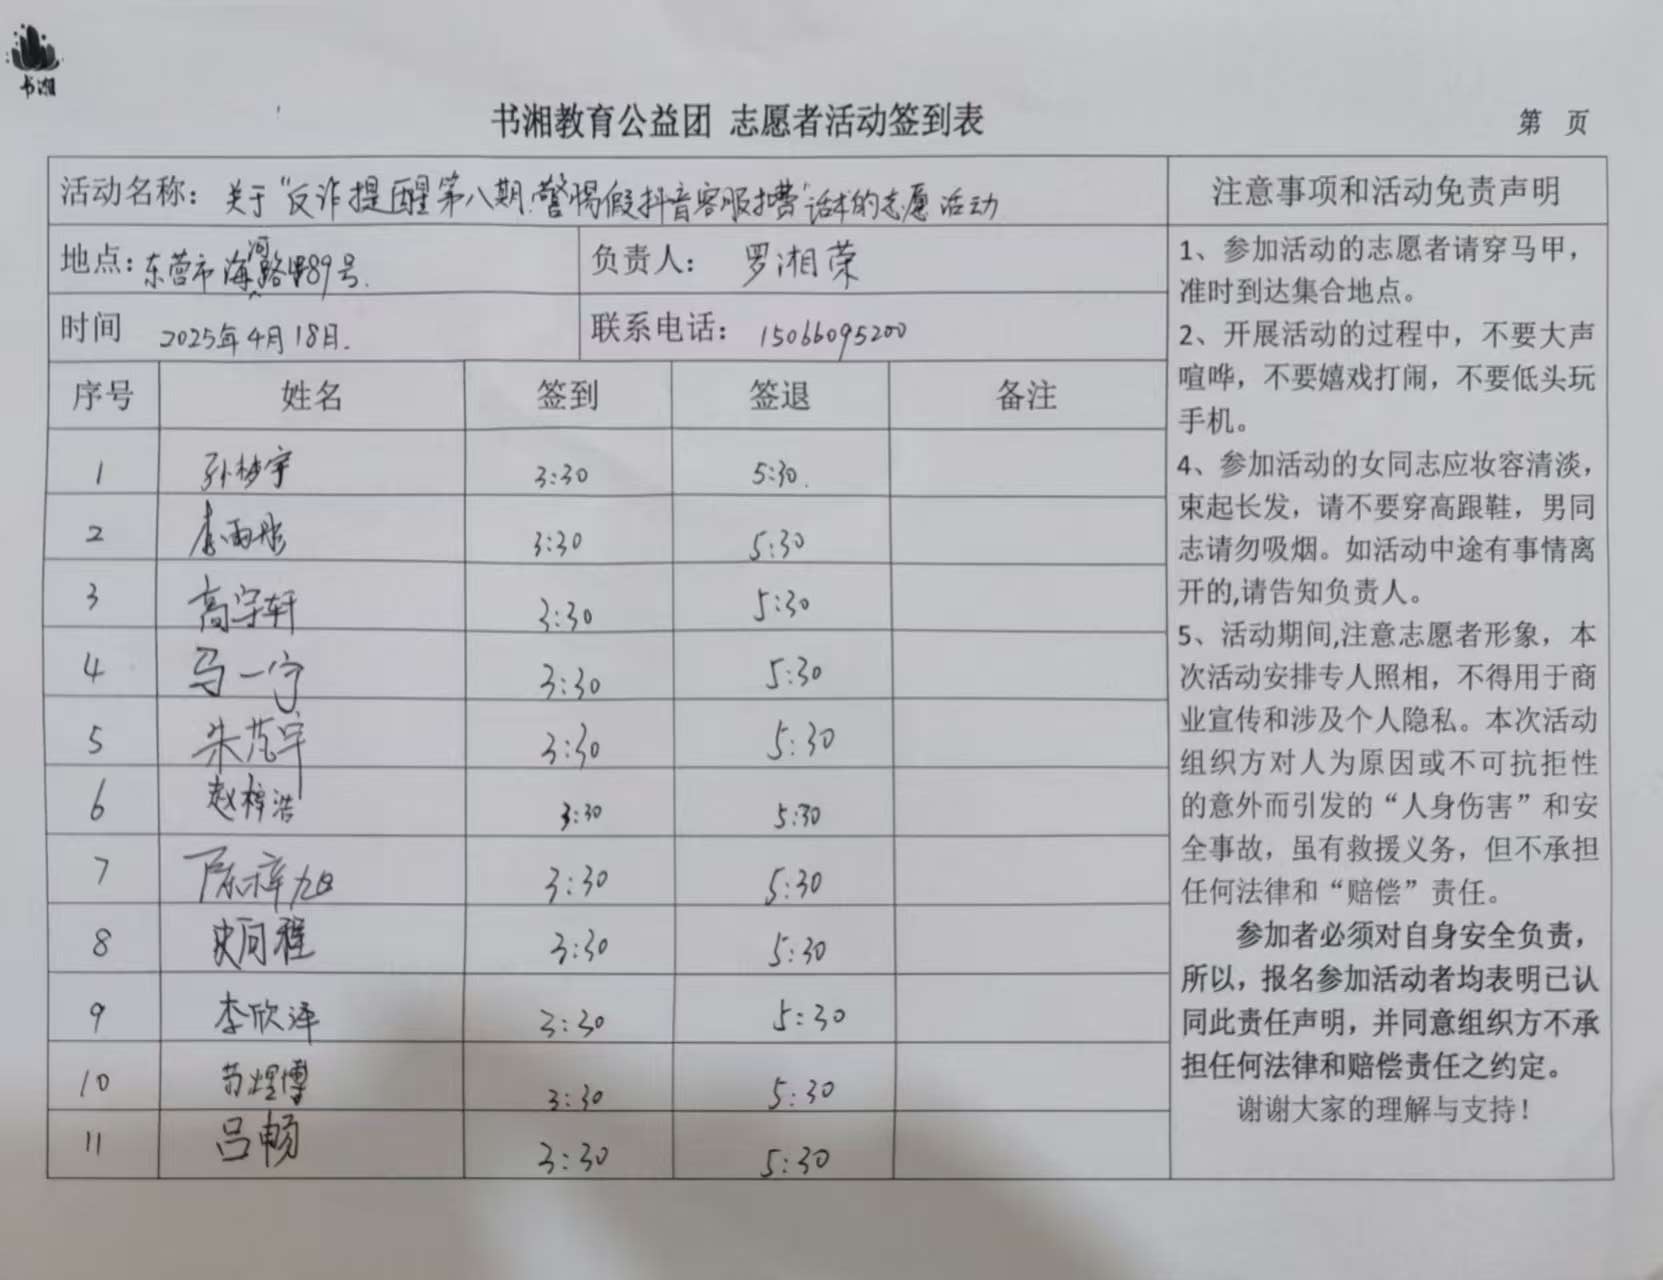 书湘
书湘教育公益团 志愿者活动签到表
第 页
活动名称：关于"反诈提醒第八期.警惕假抖音客服扣费"话术的志愿活动
地点：东营市海河路489号.
负责人：罗湘荣
时间 2025年4月18日.
联系电话：15066095200
序号 姓名 签到 签退 备注
1 孙梦宇 3:30 5:30.
2 李雨彤 3:30 5:30
3 高宇轩 3:30 5:30
4 马一宁 3:30 5:30
5 朱范宇 3:30 5:30
6 赵梓浩 3:30 5:30
7 陈梓旭 3:30 5:30
8 史同程 3:30 5:30
9 李欣泽 3:30 5:30
10 苟煜博 3:30 5:30
11 吕畅 3:30 5:30
注意事项和活动免责声明
1、参加活动的志愿者请穿马甲，
准时到达集合地点。
2、开展活动的过程中，不要大声
喧哗，不要嬉戏打闹，不要低头玩
手机。
4、参加活动的女同志应妆容清淡，
束起长发，请不要穿高跟鞋，男同
志请勿吸烟。如活动中途有事情离
开的,请告知负责人。
5、活动期间,注意志愿者形象，本
次活动安排专人照相，不得用于商
业宣传和涉及个人隐私。本次活动
组织方对人为原因或不可抗拒性
的意外而引发的“人身伤害”和安
全事故，虽有救援义务，但不承担
任何法律和“赔偿”责任。
参加者必须对自身安全负责，
所以，报名参加活动者均表明已认
同此责任声明，并同意组织方不承
担任何法律和赔偿责任之约定。
谢谢大家的理解与支持！